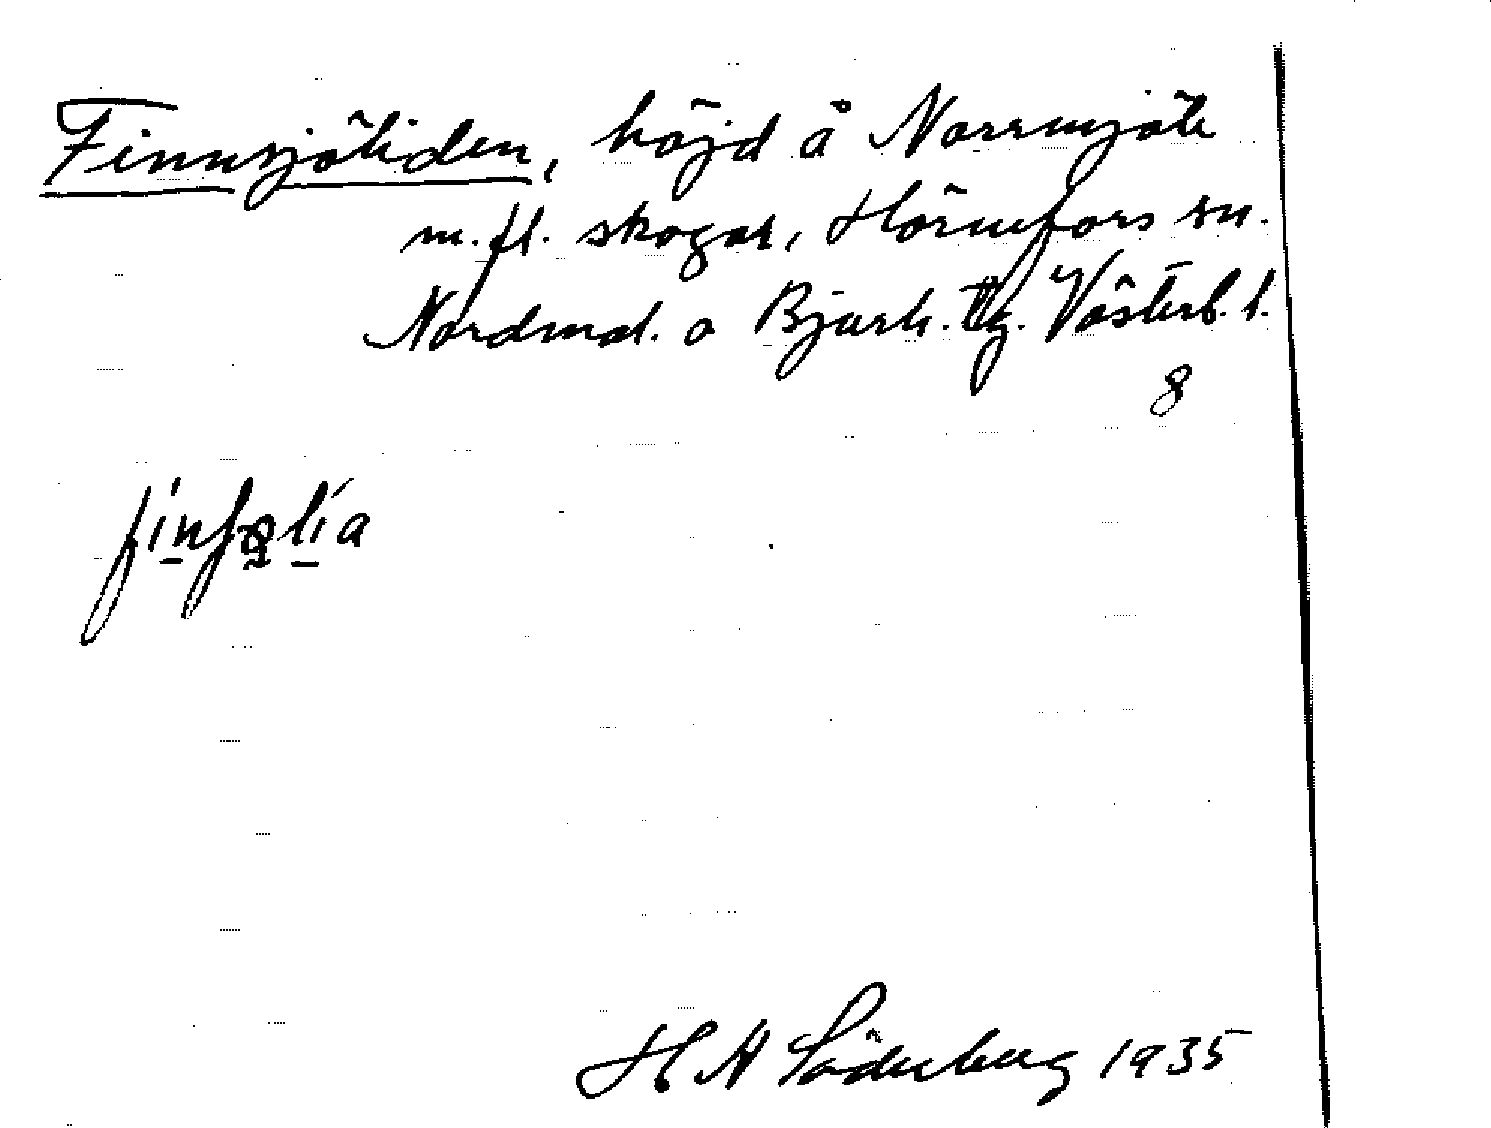 Finnsjöliden, höjd å Norrmjöle
m. fl. skogar, Hörnefors sn.
Nordmal. o Bjurh. tg. Västerb. l.
8
H A Söderberg 1935